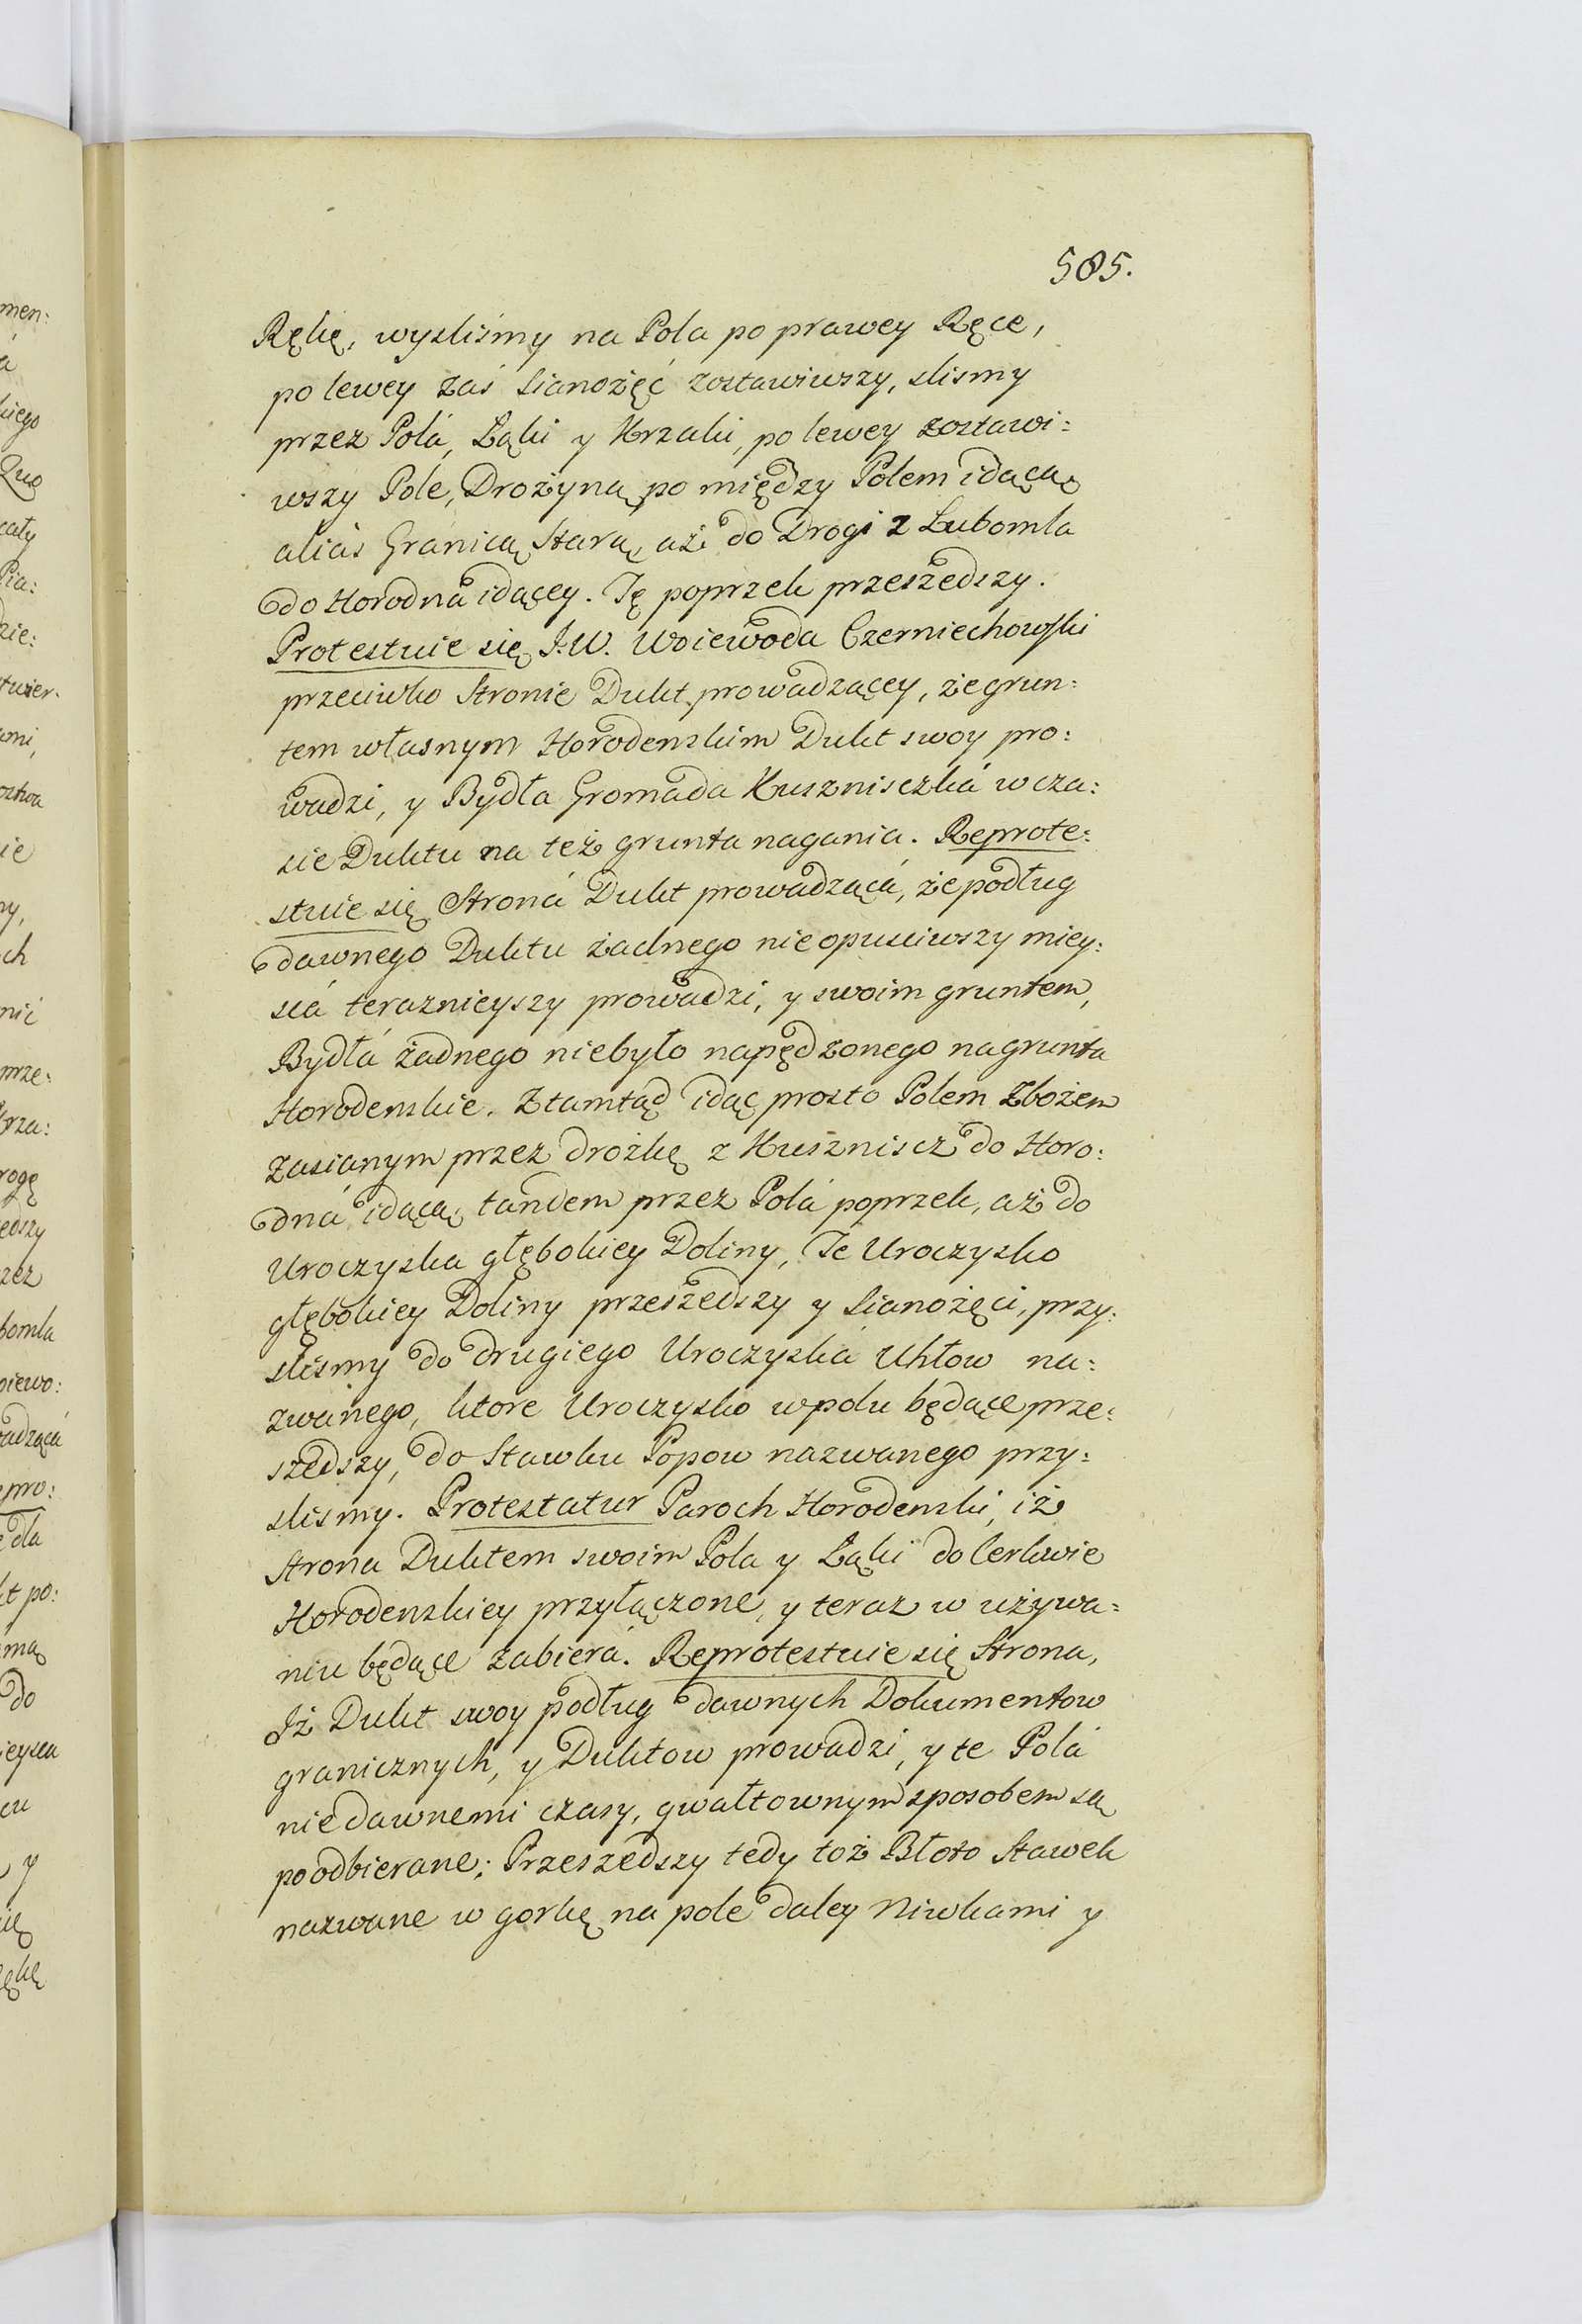 585.
Rękę, wyszliśmy na Pola po prawey Ręce,
po lewey zaś Sianożęć zostawiwszy, slismy
przez Polá, Łąki y Krzaki, po lewey zostawi:
wszy Pole, Drożyną po między Polem idącą
alias Granicą Starą, aż do Drogi z Lubomla
do Horodna idącey. Tę poprzek przeszedszy.
Protestuie się J.W. Woiewoda Czerniechowski
przeciwko Stronie Dukt prowadzącey, że grun:
tem własnym Horodenskim Dukt swoy pro:
wadzi, y Bydła Gromada Kusznisczká w cza:
sie Duktu na też grunta nagania. Reprote:
stuie się Stroná Dukt prowadzącá, że podług
dawnego Duktu żadnego nie opusciwszy miey:
scá teraznieyszy prowadzi, y swoim gruntem,
Bydłá żadnego niebyło napędzonego na grunta
Horodenskie. Ztamtąd idąc prosto Polem Zbożem
zasianym przez drożkę z Kuszniscz do Horo:
dná idącą, tandem przez Polá poprzek, aż do
Uroczyska głębokiey Doliny, Te Uroczysko
głębokiey Doliny przeszedszy y Sianożęci, przy:
slismy do drugiego Uroczyská Uhłow na:
zwanego, ktore Uroczysko w polu będące prze:
szedszy, do Stawku Popow nazwanego przy:
slismy. Protestatur Paroch Horodenski, iż
Strona Duktem swoim Pola y Łąki do Cerkwie
Horodenskiey przyłączone, y teraz w używa:
niu będące zabierá. Reprotestuie się Strona,
Iż Dukt swoy podług dawnych Dokumentow
granicznych, y Duktow prowadzi, y te Polá
niedawnemi czasy, gwałtownym sposobem są
poodbierane; Przeszedszy tedy toż Błoto Stawek
nazwane w gorkę na pole daley Niwkami y